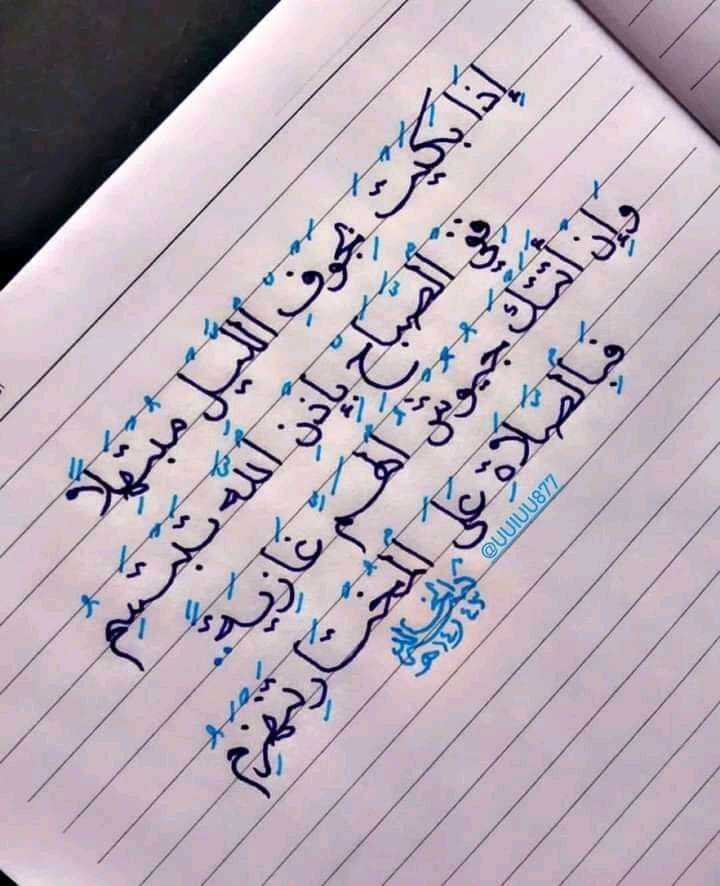 إِذَا بَكَيْتَ بِجَوْفِ اللَّيْلِ مُبْتَهِلًا
فِي الصَّبَاحِ بِإِذْنِ اللهِ تَبْتَسِمُ
وَإِنْ أَتَتْكَ جُيُوشُ الْهَمِّ غَازِيَةً
فَبِالصَّلَاةِ عَلَى الْمُخْتَارِ تَنْهَزِمُ
@UUIUU877